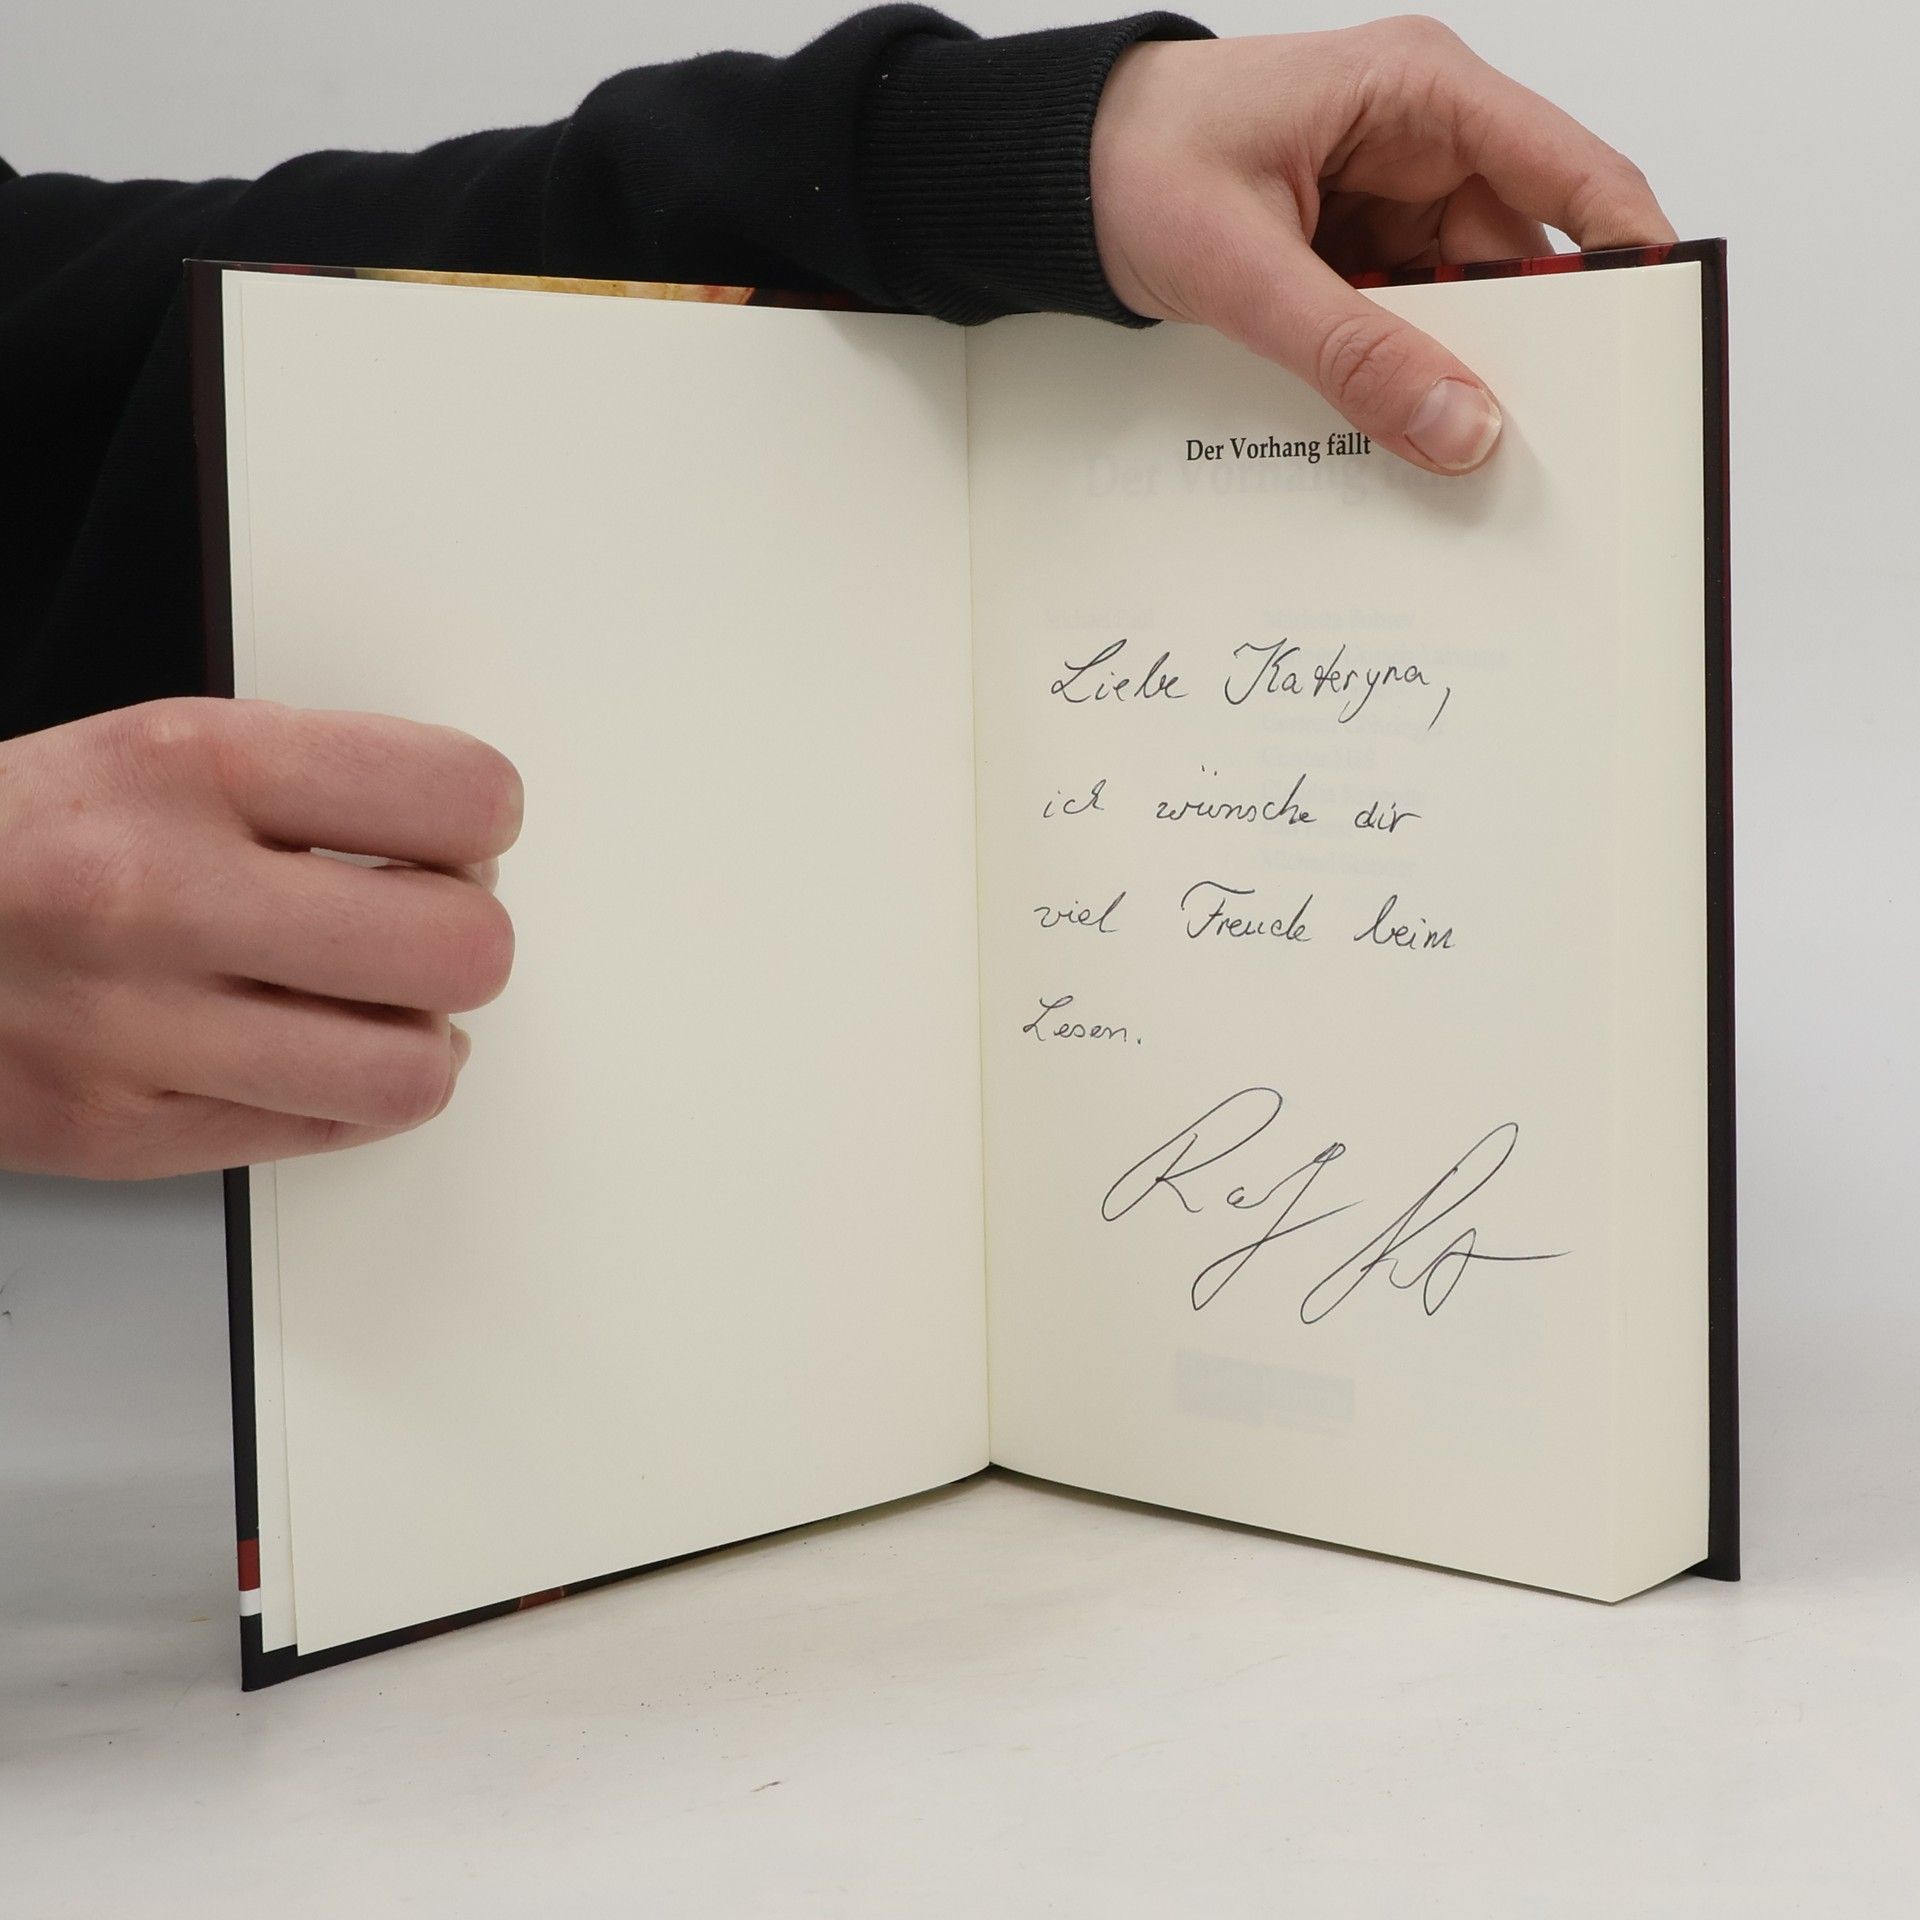 Der Vorhang fällt
Liebe Kateryna,
ich wünsche dir
viel Freude beim
Lesen.
Ralf